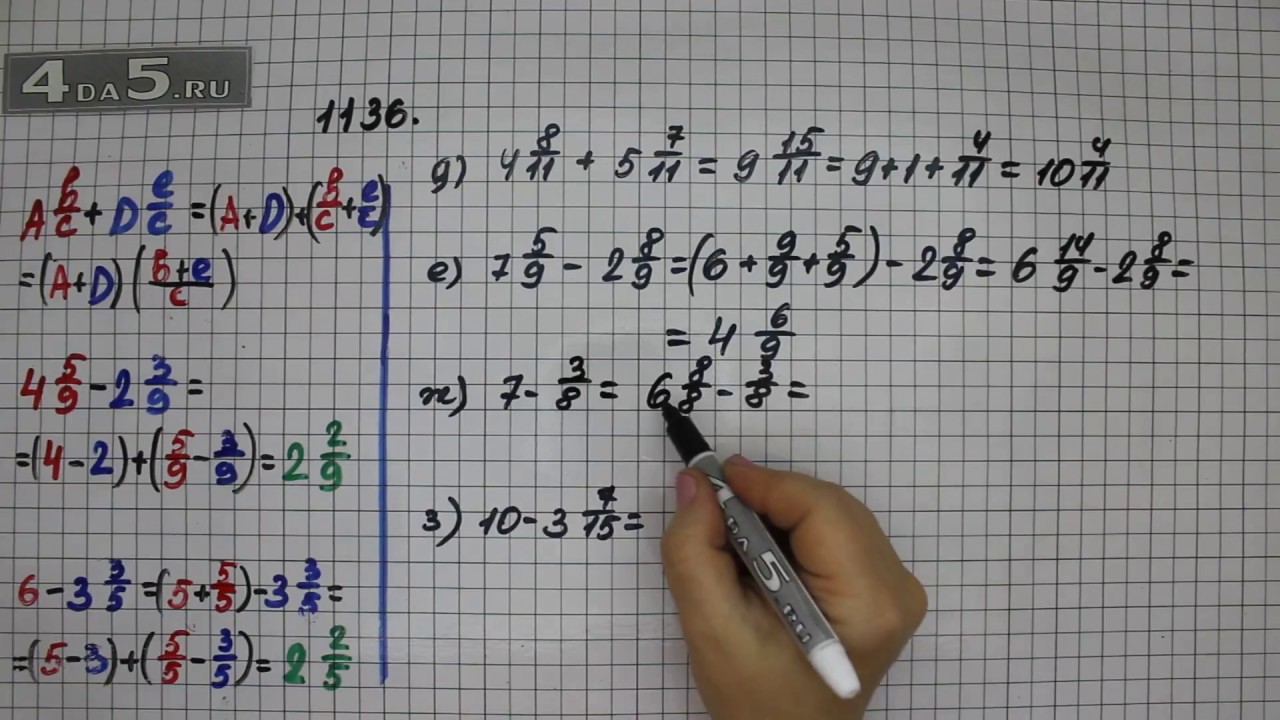 4DA5.RU
1136.
A b/c + D e/c = (A+D)+(b/c+e/c)
=(A+D)(b+e/c)
4 5/9 - 2 3/9 =
=(4-2)+(5/9-3/9)=2 2/9
6-3 3/5=(5+5/5)-3 3/5=
=(5-3)+(5/5-3/5)=2 2/5
д) 4 8/11 + 5 7/11 = 9 15/11 = 9+1+4/11 = 10 4/11
е) 7 5/9 - 2 8/9 = (6+9/9+5/9) - 2 8/9 = 6 14/9 - 2 8/9 =
= 4 6/9
ж) 7 - 3/8 = 6 8/8 - 3/8 =
з) 10-3 7/15=
5.RU